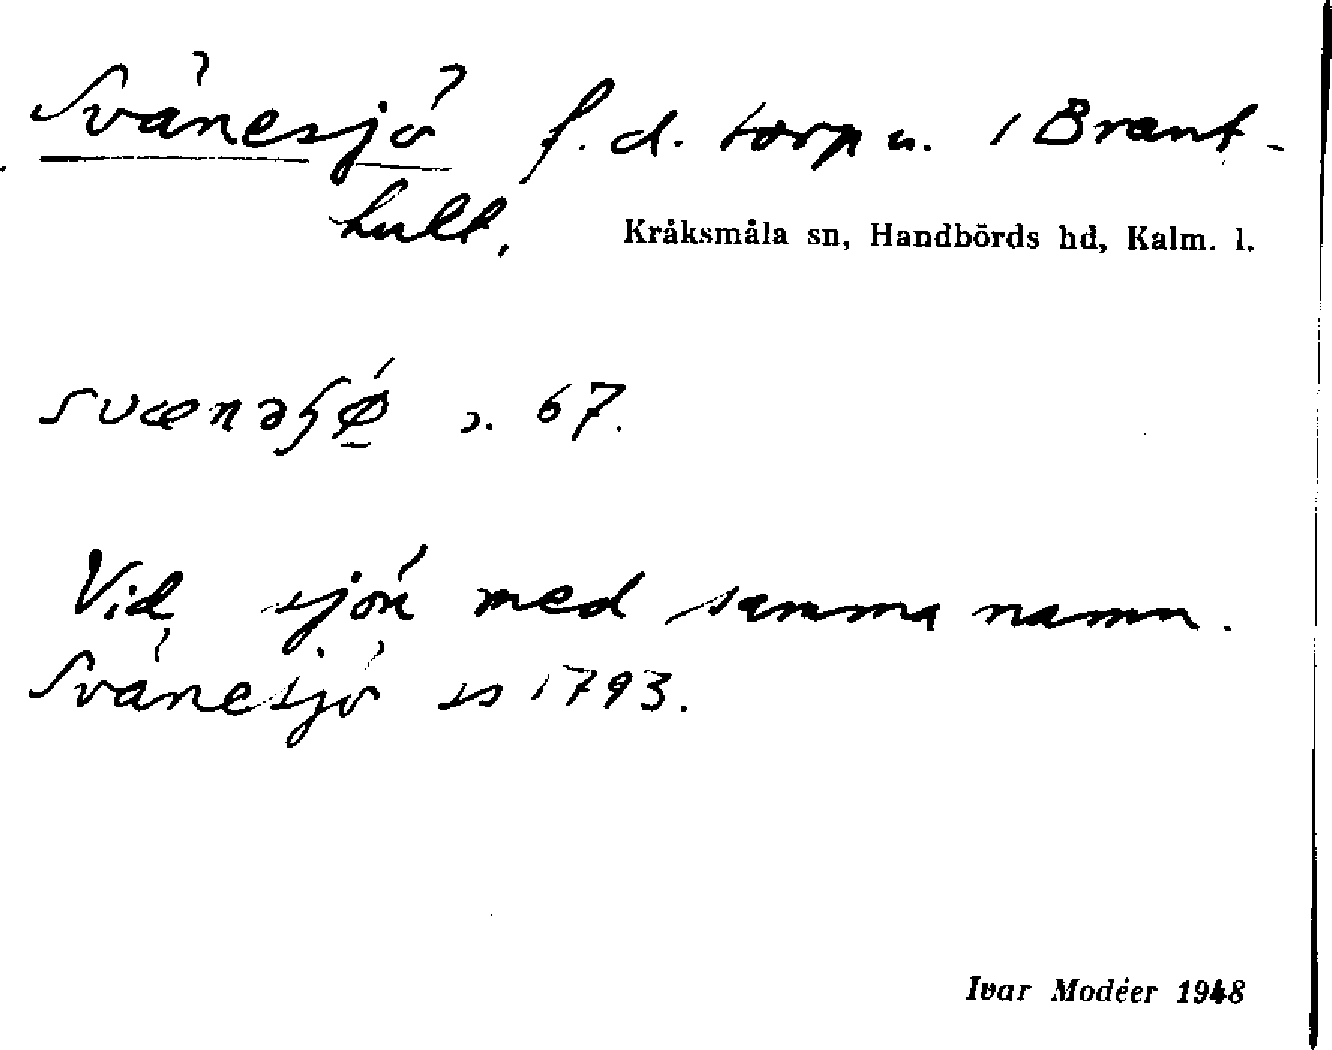 Svänesjö f.d. torp u. / Brant-
hult.
Kråksmåla sn, Handbörds hd, Kalm. l.
svænəʃǿ̠ ɔ. 67.
Vid sjön med samma namn.
Svänesjö 1793.
Ivar Modéer 1948